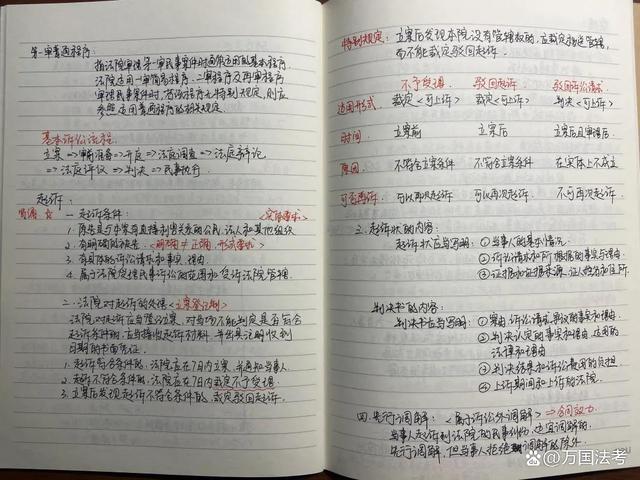 第一审普通程序:
指法院审理第一审民事案件时通常适用的基本程序
法院适用一审简易程序、二审程序及再审程序
审理民事案件时,若该程序无特别规定,则应
参照适用普通程序的相关规定.
基本诉讼流程
立案 => 审前准备 => 开庭 => 法庭调查 => 法庭辩论
=> 法庭评议 => 判决 => 民事执行.
起诉:
一、起诉条件: <实质要求>
1. 原告是与本案有直接利害关系的公民、法人和其他组织
2. 有明确的被告. <明确 ≠ 正确, 形式要求>
3. 有具体的诉讼请求和事实、理由
4. 属于法院受理民事诉讼的范围和受诉法院管辖.
二、法院对起诉的处理 <立案登记制>
法院对起诉应当登记立案, 对当场不能判定是否符合
起诉条件的, 应当接收起诉材料, 并出具注明收到
日期的书面凭证.
1. 起诉符合条件的, 法院应在7日内立案, 并通知当事人.
2. 起诉不符合条件的, 法院应在7日内裁定不予受理.
3. 立案后发现起诉不符合条件的, 裁定驳回起诉.
特别规定: 立案后发现本院没有管辖权的, 应裁定移送管辖,
而不能裁定驳回起诉.
不予受理 驳回起诉 驳回诉讼请求
适用形式. 裁定<可上诉> 裁定<可上诉> 判决<可上诉>
时间. 立案前 立案后 立案后且审理后
原因 不符合立案条件 不符合立案条件 在实体上不成立
可否再诉. 可以再次起诉 可以再次起诉. 不可再次起诉.
三、起诉状的内容:
起诉状应当写明: ①当事人的基本情况.
②诉讼请求和所根据的事实与理由.
③证据和证据来源, 证人姓名和住所.
判决书的内容:
判决书应当写明: ①案由、诉讼请求、争议的事实和理由.
②判决认定的事实和理由、适用的
法律和理由
③判决结果和诉讼费用的负担.
④上诉期间和上诉的法院.
四、先行调解: <属于诉讼外调解> => 合同效力
当事人起诉到法院的民事纠纷, 适宜调解的,
先行调解, 但当事人拒绝调解的除外.
@万国法考